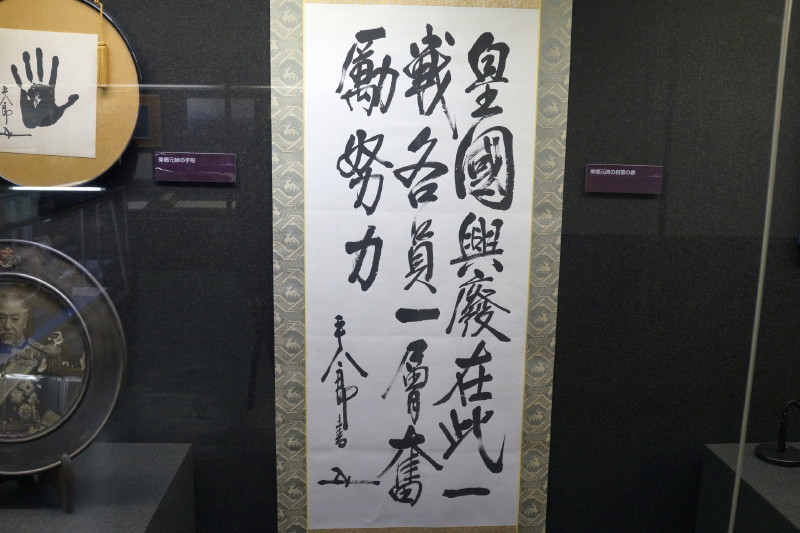 皇國興廢在此一
戦各員一層奮
励努力
平八郎書
平八郎
東郷元帥の手形
東郷元帥の自筆の書